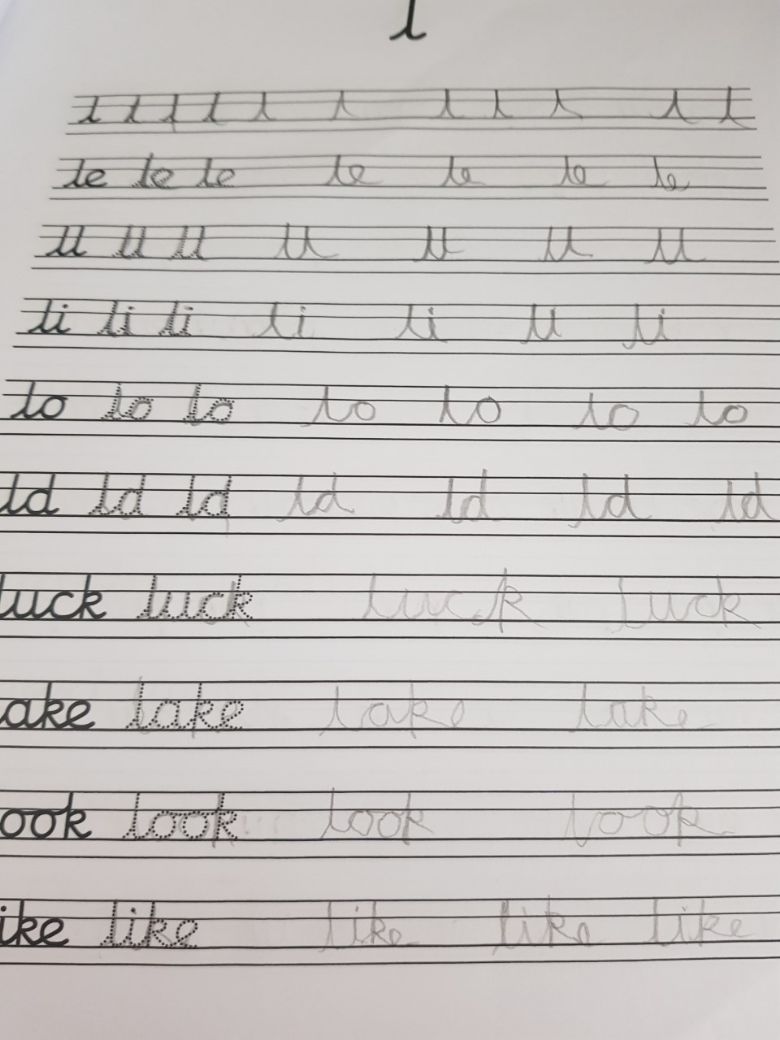 l
l l l l l l l l l l l
le le le le le le le
ll ll ll ll ll ll ll
li li li li li li li
lo lo lo lo lo lo lo
ld ld ld ld ld ld ld
luck luck luck luck
ake lake lake lake
ook look look look
ike like like like like